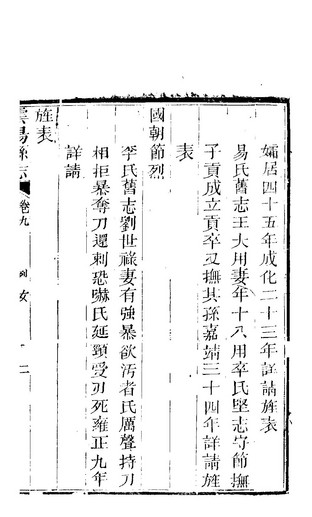 孀居四十五年成化二十三年詳請旌表
易氏舊志王大用妻年十八用卒氏堅志守節撫
子貢成立貢卒又撫其孫嘉靖三十四年詳請旌
表
國朝節烈
李氏舊志劉世祿妻有強暴欲污者氏厲聲持刀
相拒暴奪刀還刺恐嚇氏延頸受刃死雍正九年
詳請
旌表
陽縣志
卷九
列女